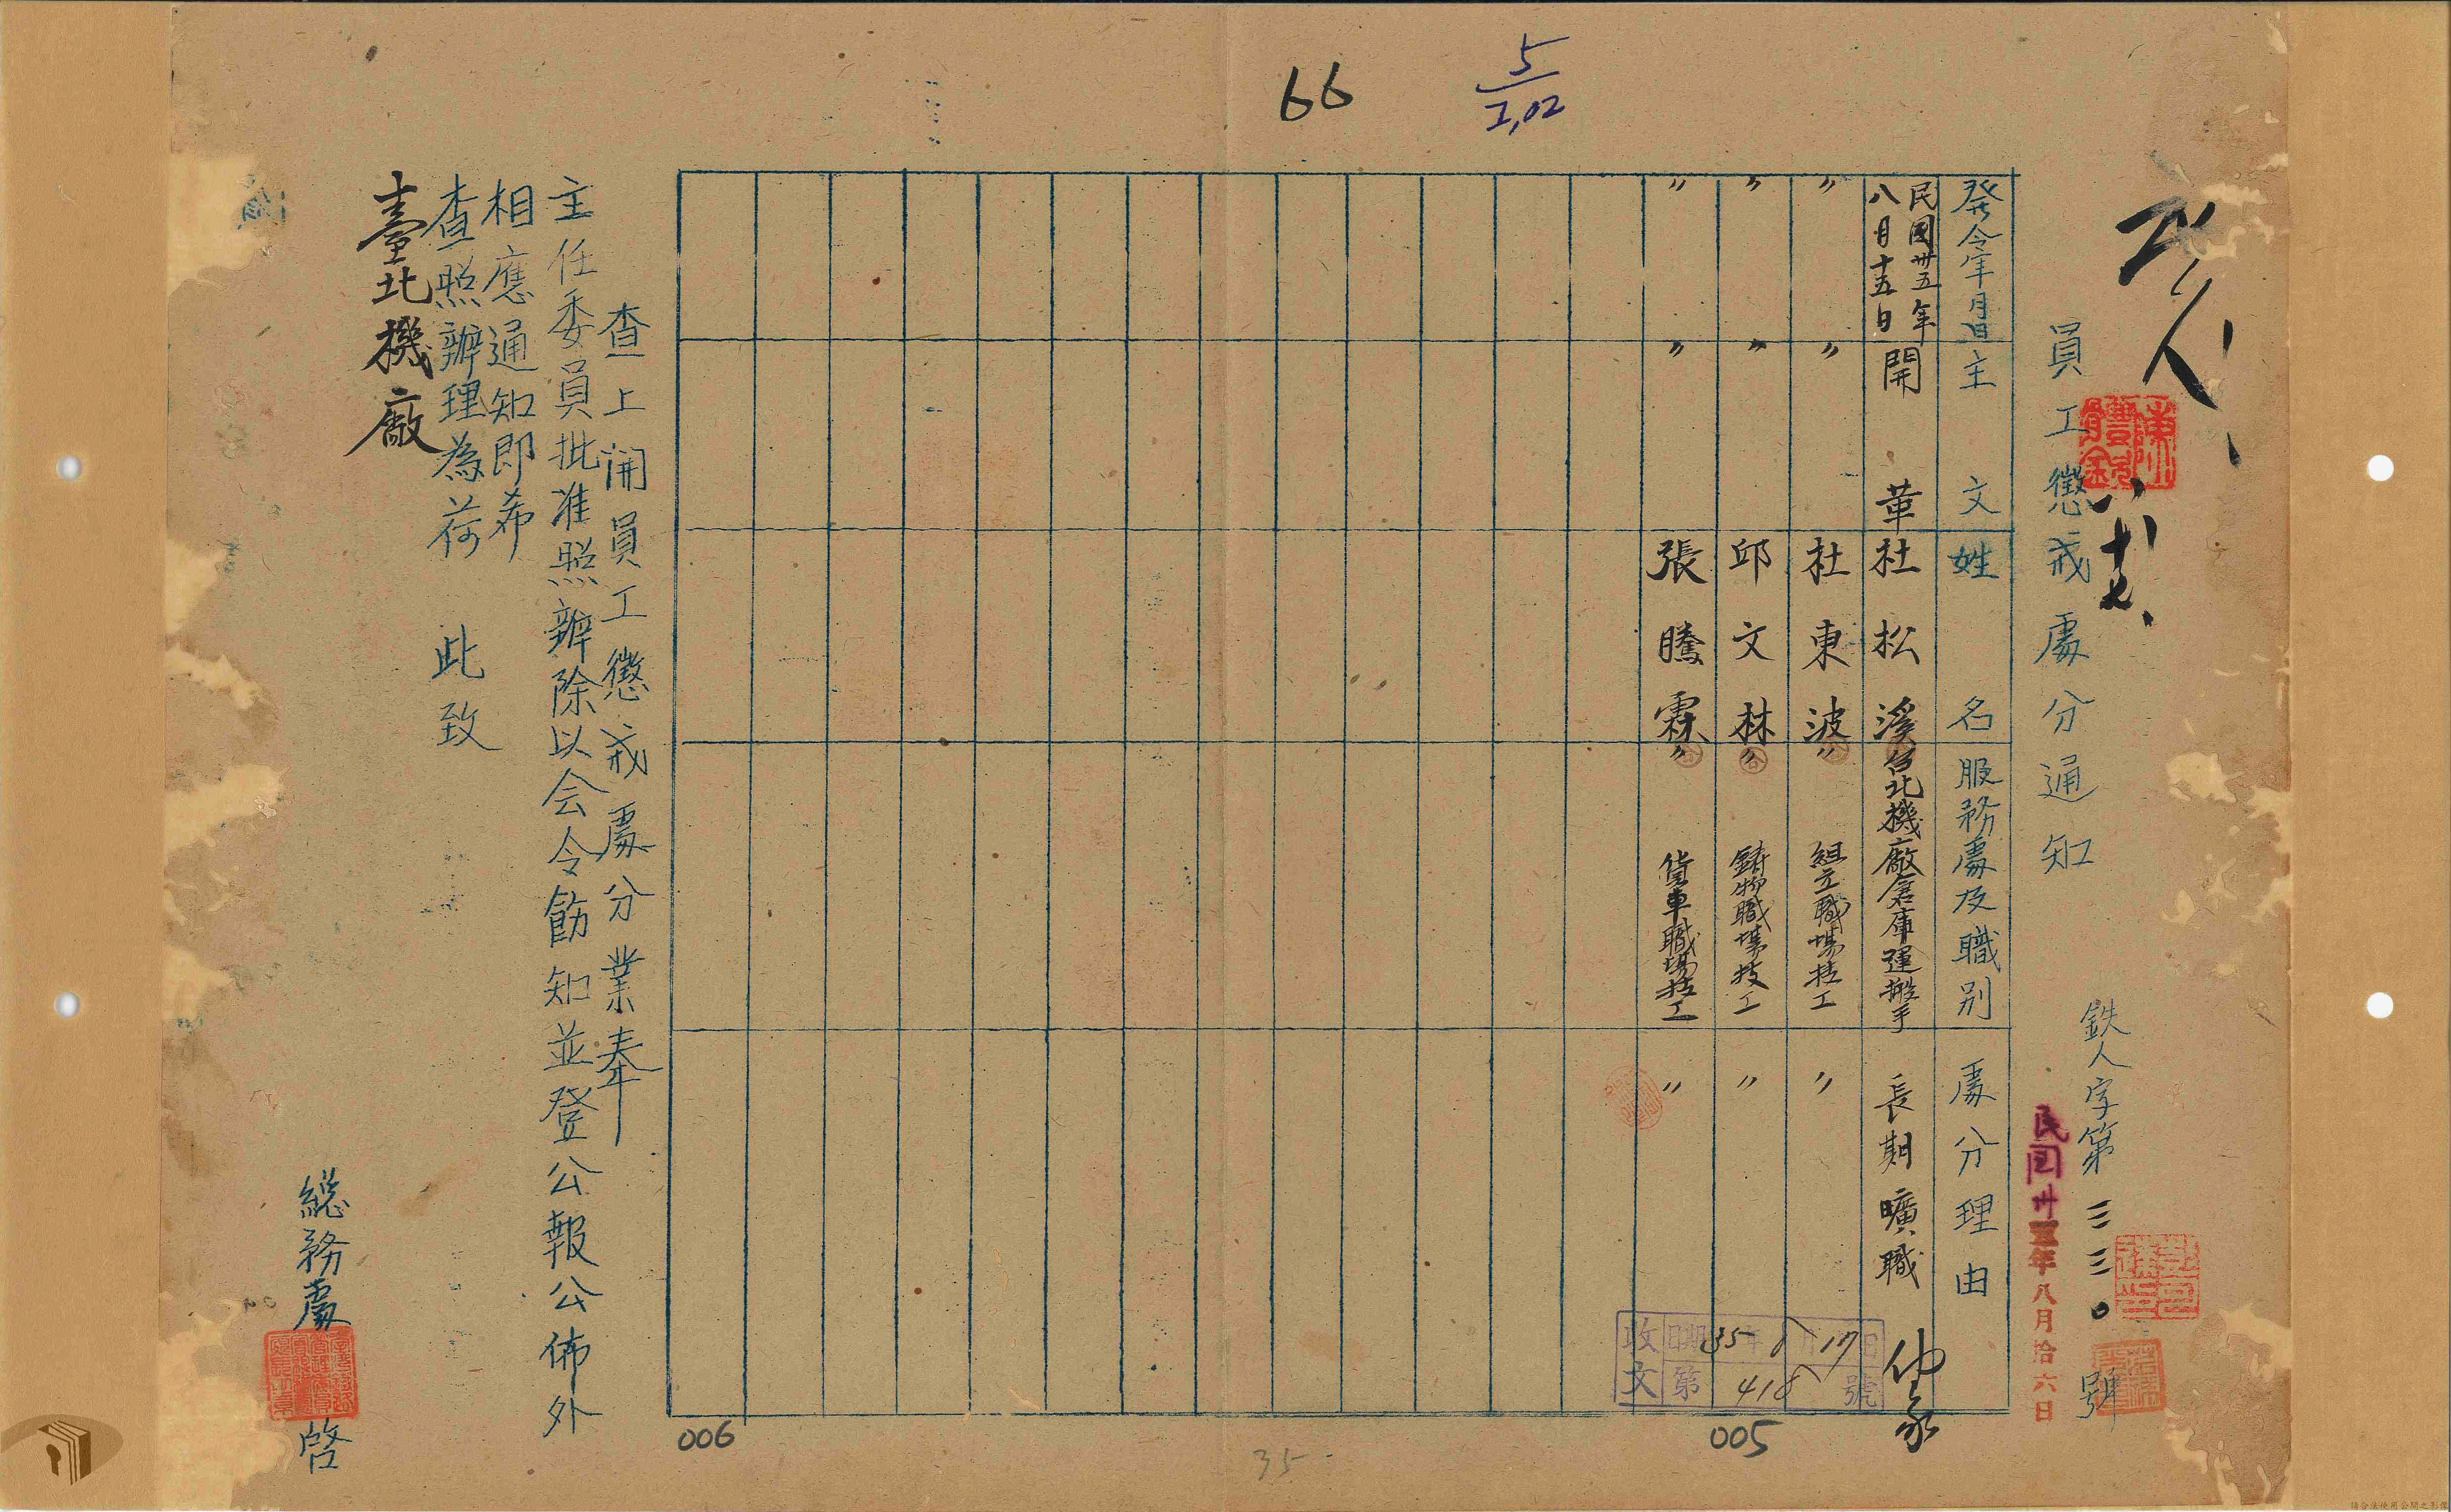 66
5
2,02
員工懲戒處分通知
鉄人字第三三〇號
民國卅五年八月拾六日
發令年月日 主文 姓名 服務處及職別 處分理由
民國卅五年八月十五日 開革 杜松溪 台北機廠倉庫運搬手 長期曠職
〃 〃 杜東波 〃 組立職場技工 〃
〃 〃 邱文林 〃 鋳物職場技工 〃
〃 〃 張騰霖 〃 貨車職場技工 〃
收文 日期 35年8月17日
第 418 號
查上開員工懲戒處分業奉
主任委員批准照辦除以会令飭知並登公報公佈外
相應通知即希
查照辦理為荷 此致
臺北機廠
總務處 啓
005
006
35